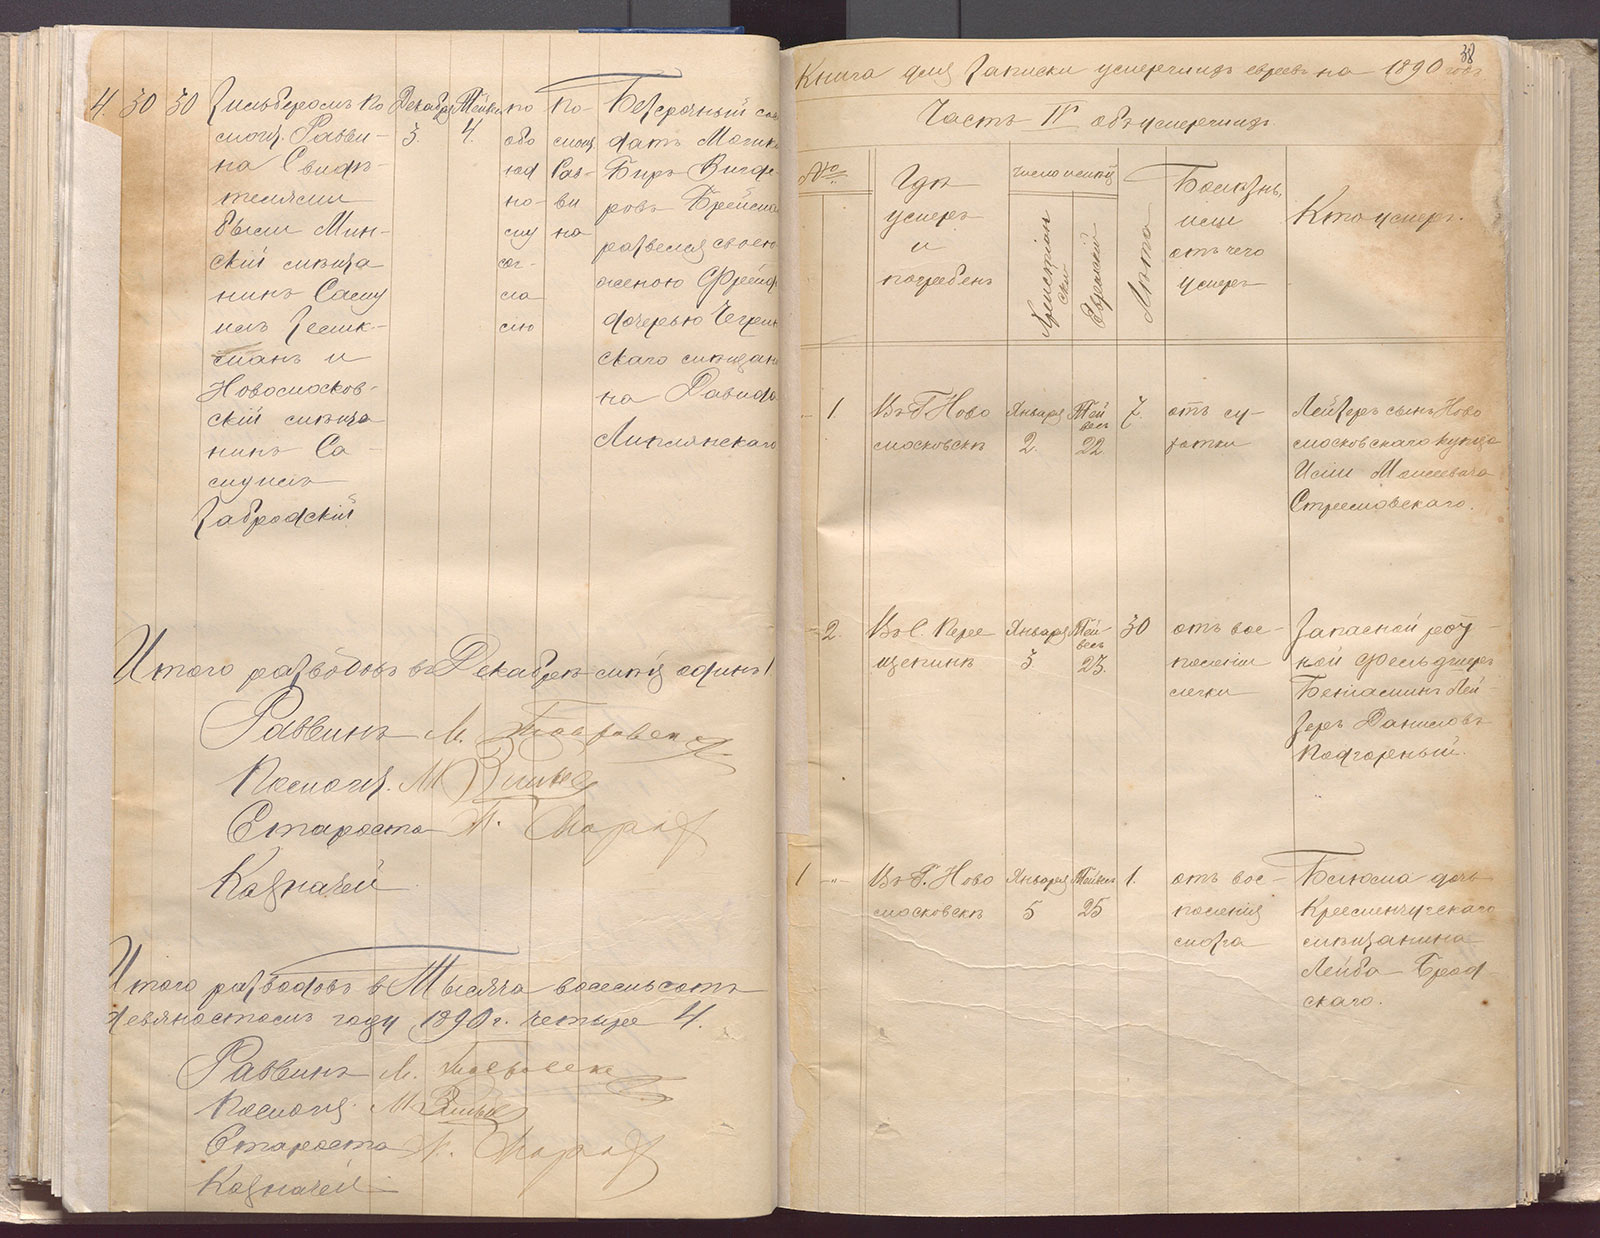 4. 30 30
Зильберомъ По
мощ. Равви-
на Свидѣ-
телями
были Мин-
скій мѣща
нинъ Саму
илъ Зелик-
манъ и
Новомосков-
скій мѣща
нинъ Са-
муилъ
Забродскій
Декабря
3.
Тейвес
4.
по
обо
юд
но-
му
сог-
ла
сію
По-
мощ
Рав-
ви
на
Безсрочный
датъ
Беръ
ровъ
развелся своею
женою
дочерью
скаго мѣщан
на Давида
Липлянскаго
Итого разводовъ въ Декабрѣ мѣсяцѣ одинъ 1
Раввинъ М.
Помощ. М.
Староста
Казначей
Итого разводовъ въ Тысяча восемьсотъ
девяностомъ году 1890 г. четыре 4.
Раввинъ М.
Помощ. М.
Староста
Казначей
38
Книга для Записки умершихъ евреевъ на 1890 годъ
Часть IV объ умершихъ
№
Гдѣ
умеръ
и
погребенъ
Число и мѣсяцъ
Христіан
скій
Еврейскій
Лѣта
Болѣзнь,
или
отъ чего
умеръ
Кто умеръ.
1.
Въ Г. Ново
московскѣ
Января
2.
Тей
весъ
22
7.
отъ су-
хотки
Лейзеръ сынъ Ново
московскаго купца
Моисеевича
2.
Въ С. Пере
щепинѣ
Января
3
Тей-
весъ
23.
30
отъ вос-
паленія
легкихъ
Запасной рот-
ной фельдшеръ
Беніаминъ Лей-
зеръ Даниловъ
Подгорный.
1
Въ Г. Ново
московскѣ
Января
5
Тейвесъ
25
1.
отъ вос-
паленія
мозга
Блюма дочь
Кременчугскаго
мѣщанина
Лейба Брод
скаго.